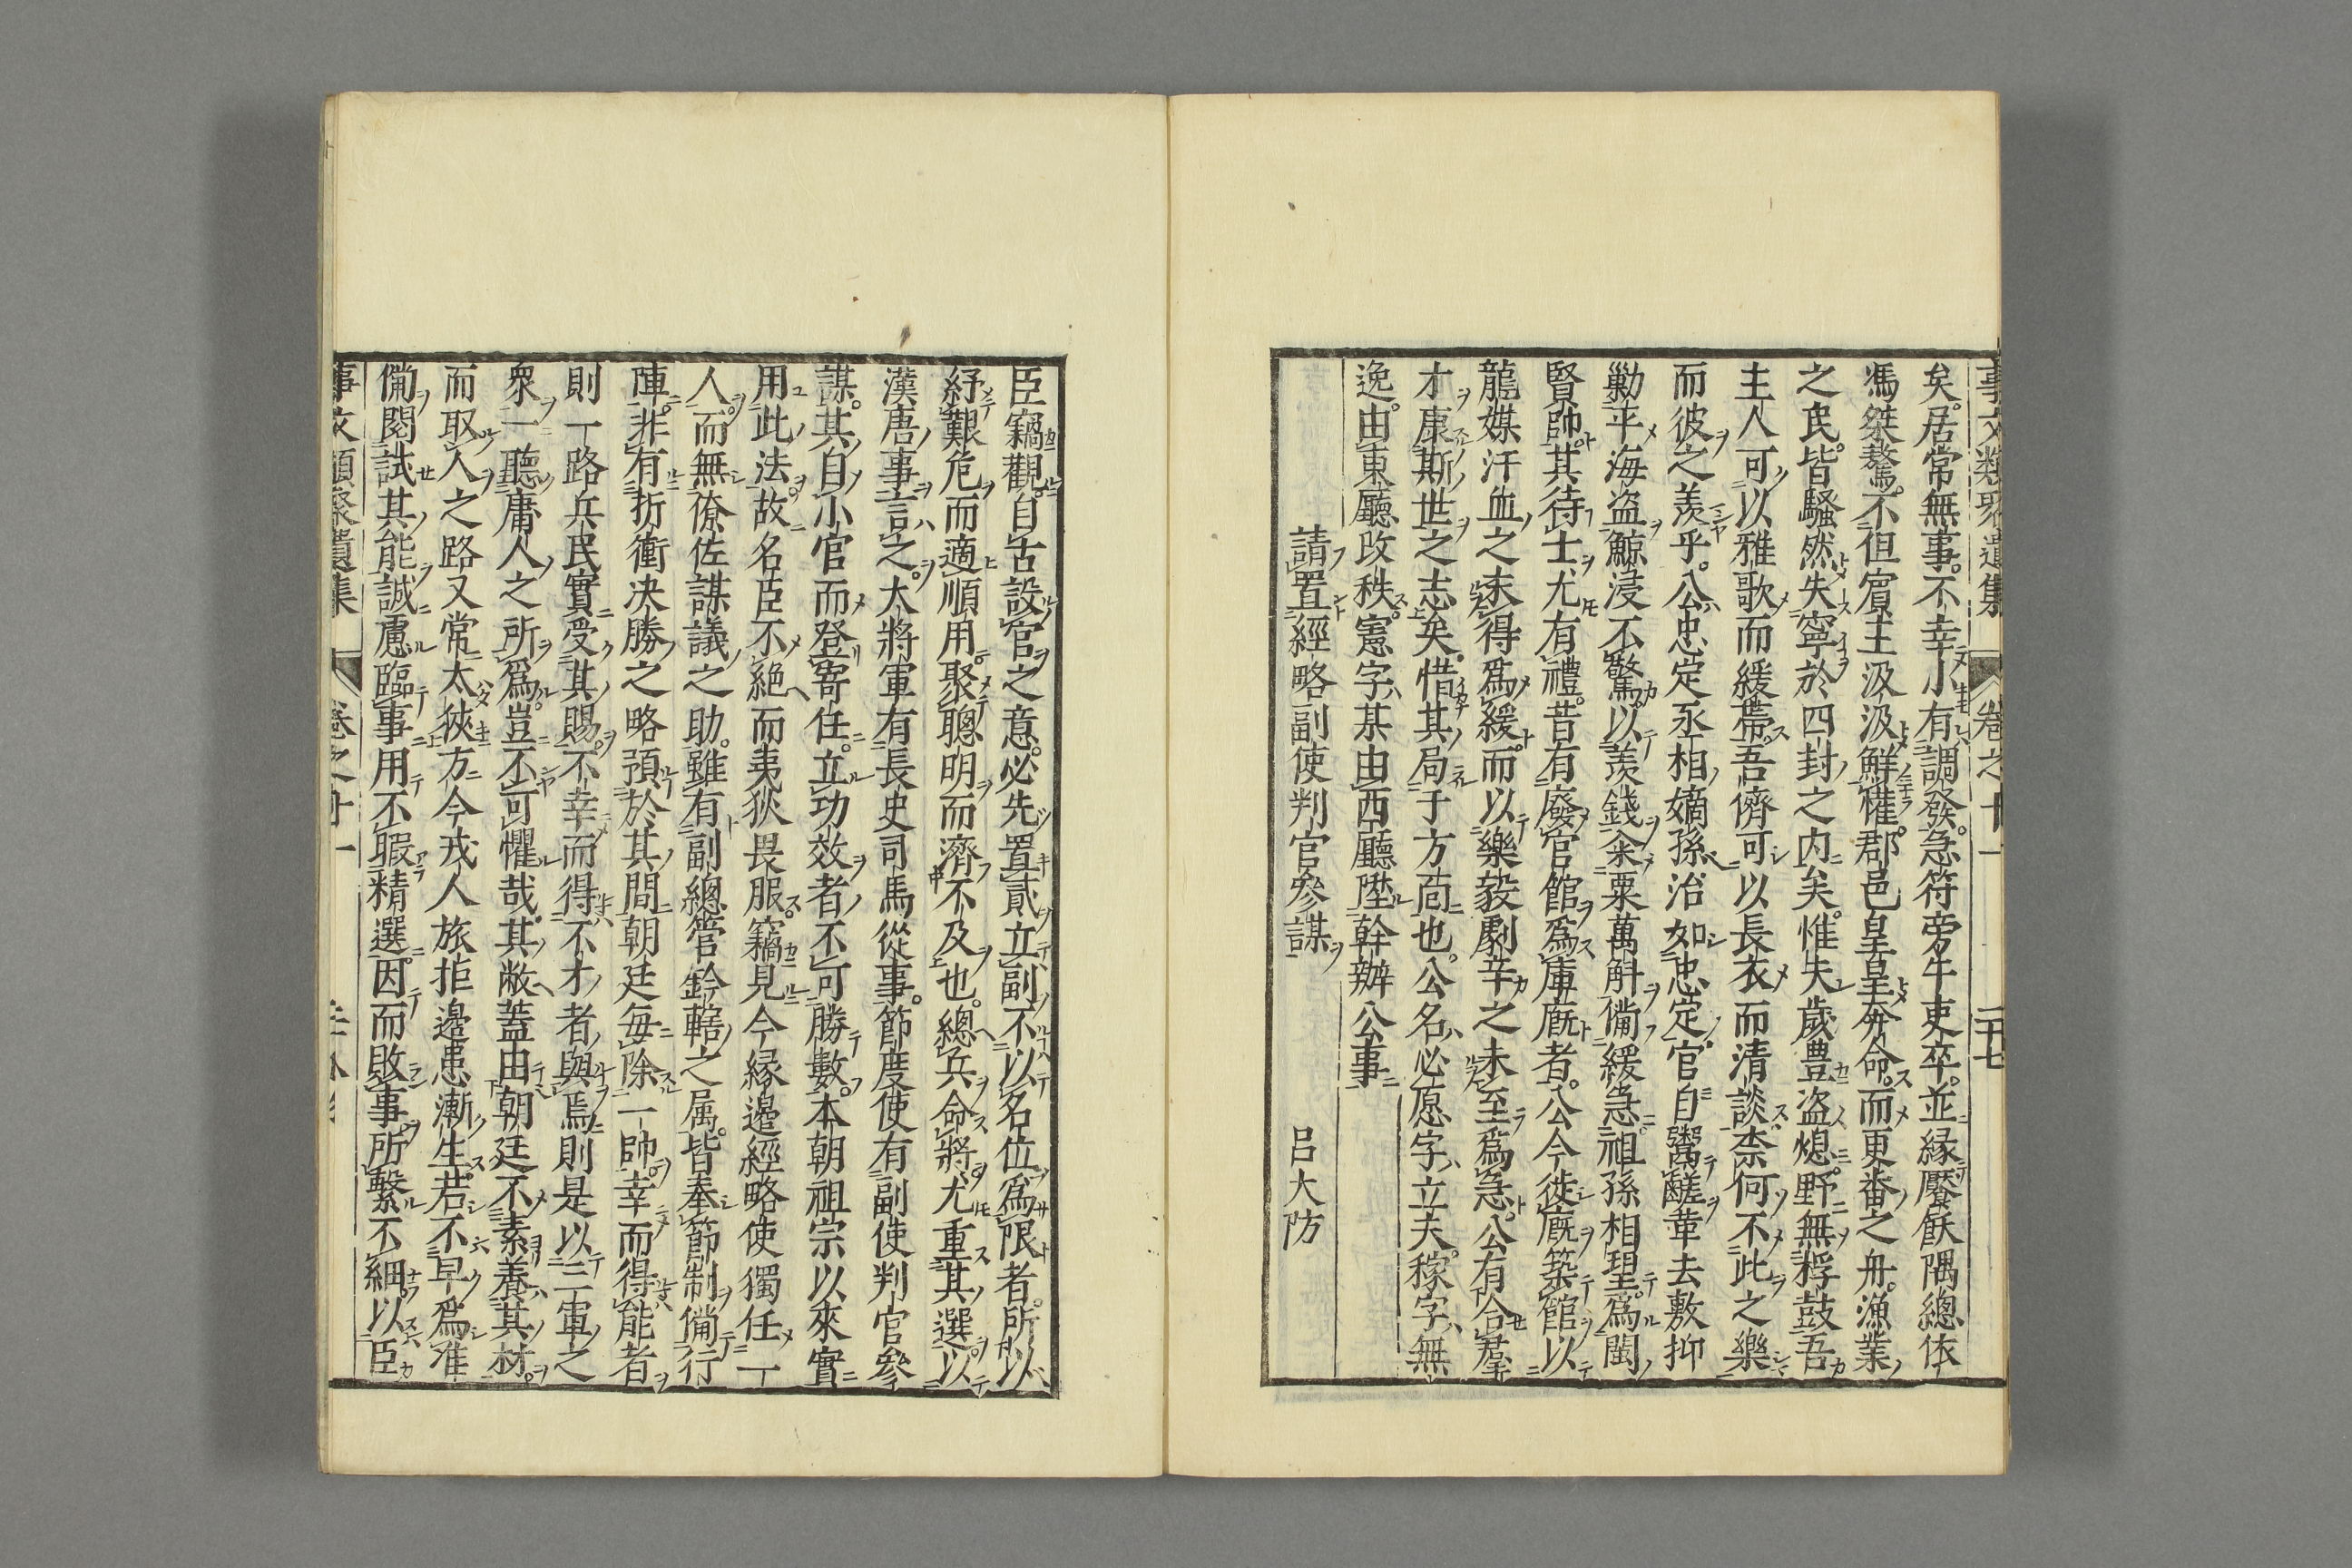 事文類聚遺集 卷之十一 二十七
矣。居常無事。不幸小有調發。急符旁午吏卒。並緣饜飫隅總依
馮桀驁。不但賓主汲汲鮮懽。郡邑皇皇奔命。而更番之舟。漁業
之民。皆騷然失寧於四封之内矣。惟失歲豊盗熄。野無桴鼓吾
主人可以雅歌而緩帶。吾儕可以長衣而清談。柰何不此之樂
而彼之羨乎。公忠定丞相嫡孫。治如忠定。官自鬻鹺。革去敷抑
勦平海盗鯨浸不驚。以羨錢籴粟萬斛備緩急。祖孫相望。爲閩
賢帥。其待士尤有禮。昔有廢官館爲庫廐者。公今徙廐築館以
龍媒汗血之未得爲緩。而以樂毅劇辛之未至爲急。公有合羣
才康斯世之志矣。惜其局于方面也。公名必愿字立夫。稼字無
逸。由東廳改秩。寯字某由西廳陞幹辦公事
請置經略副使判官參謀 呂大防
臣竊觀。自古設官之意。必先置貳立副不以名位爲限者。所以
紓艱危而適順用聚聰明而濟不及也。總兵命將尤重其選以
漢唐事言之。大將軍有長史司馬從事。節度使有副使判官參
謀。其自小官而登寄任。立功效者不可勝數。本朝祖宗以來實
用此法。故名臣不絶而夷狄畏服。竊見今縁邊經略使獨任一
人。而無僚佐謀議之助。雖有副總管鈐轄之属。皆奉節制備行
陣。非有折衝决勝之略預於其間朝廷毎除一帥。幸而得能者
則一路兵民實受其賜。不幸而得不才者與焉則是以三軍之
衆一聽庸人之所爲。豈不可懼哉。其敝蓋由朝廷不素養其材。
而取人之路又常太狹方今戎人旅拒邊患漸生。若不早爲准
備閲試其能誠慮臨事用不暇精選。因而敗事。所繫不細。以臣
事文類聚遺集 卷之十一